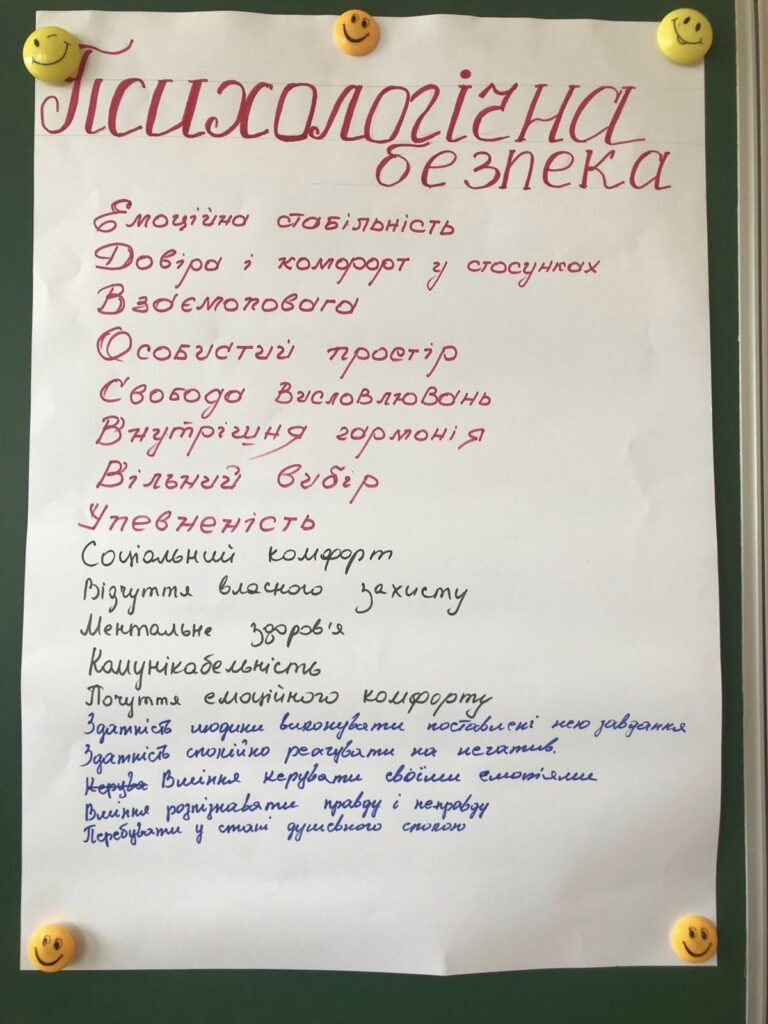 Психологічна
безпека
Емоційна стабільність
Довіра і комфорт у стосунках
Взаємоповага
Особистий простір
Свобода висловлювань
Внутрішня гармонія
Вільний вибір
Упевненість
Соціальний комфорт
Відчуття власного захисту
Ментальне здоров'я
Комунікабельність
Почуття емоційного комфорту
Здатність людини виконувати поставлені нею завдання
Здатність спокійно реагувати на негатив.
Керува Вміння керувати своїми емоціями
Вміння розпізнавати правду і неправду
Перебувати у стані душевного спокою